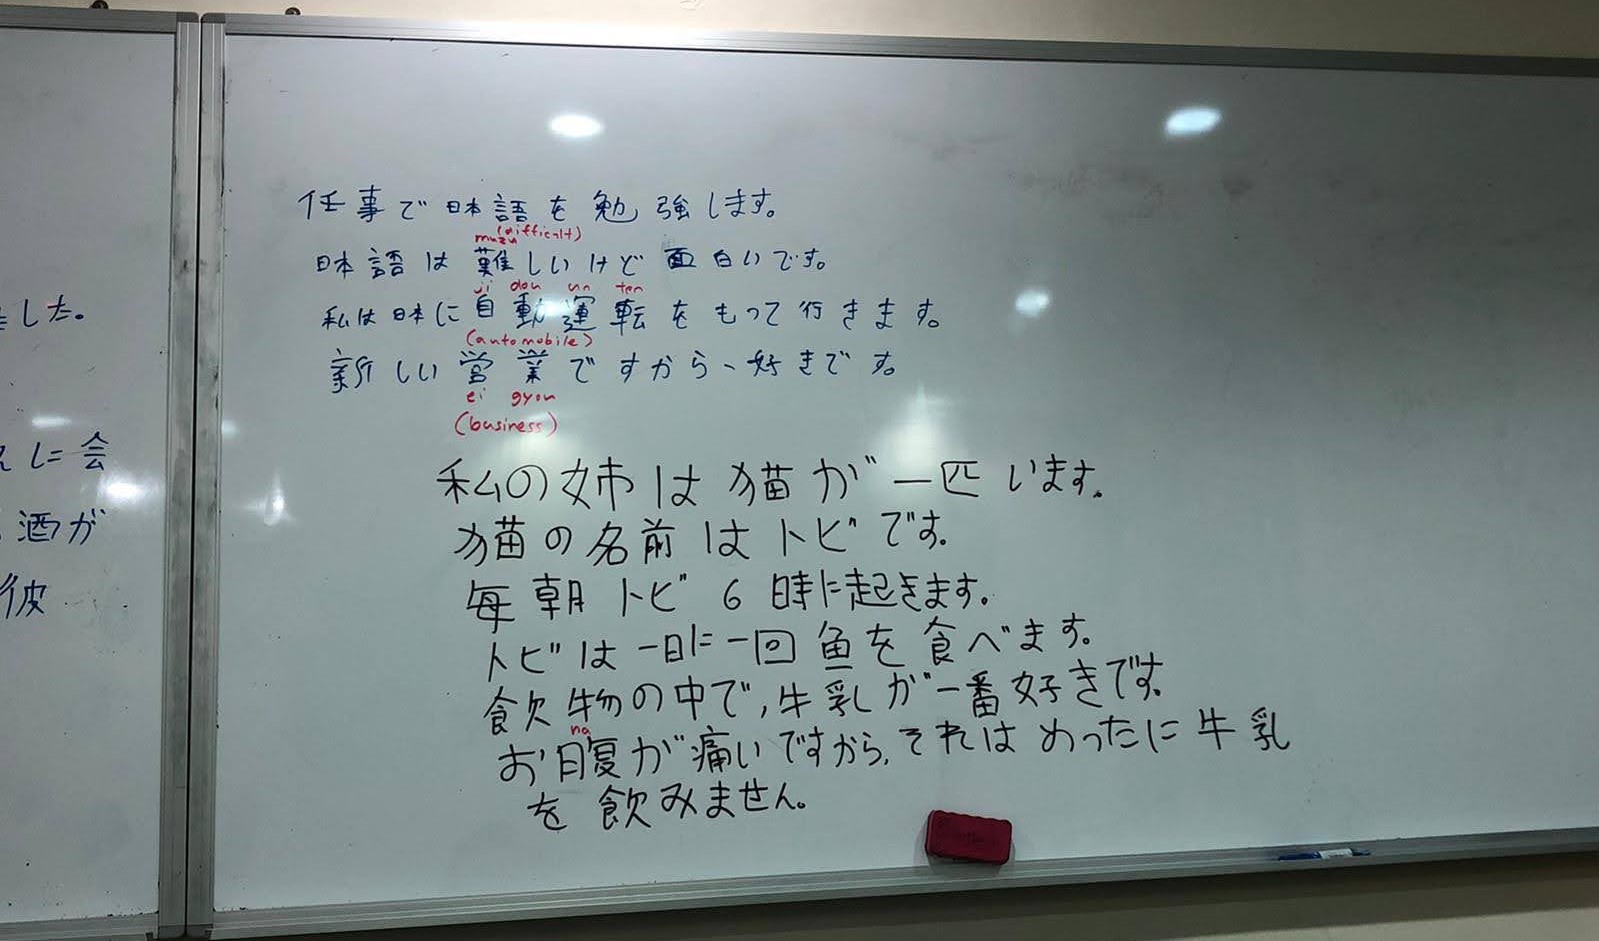 した。
に会
酒が
彼
任事で日本語を勉強します。
(difficult)
muzu
日本語は難しいけど面白いです。
ji dou un ten
私は日本に自動運転をもって行きます。
(automobile)
新しい営業ですから、好きです。
ei gyou
(business)
私の姉は猫が一匹います。
猫の名前はトビです。
毎朝トビ6時に起きます。
トビは一日に一回魚を食べます。
飲物の中で,牛乳が一番好きです。
na
お腹が痛いですから,それはめったに牛乳
を飲みません。